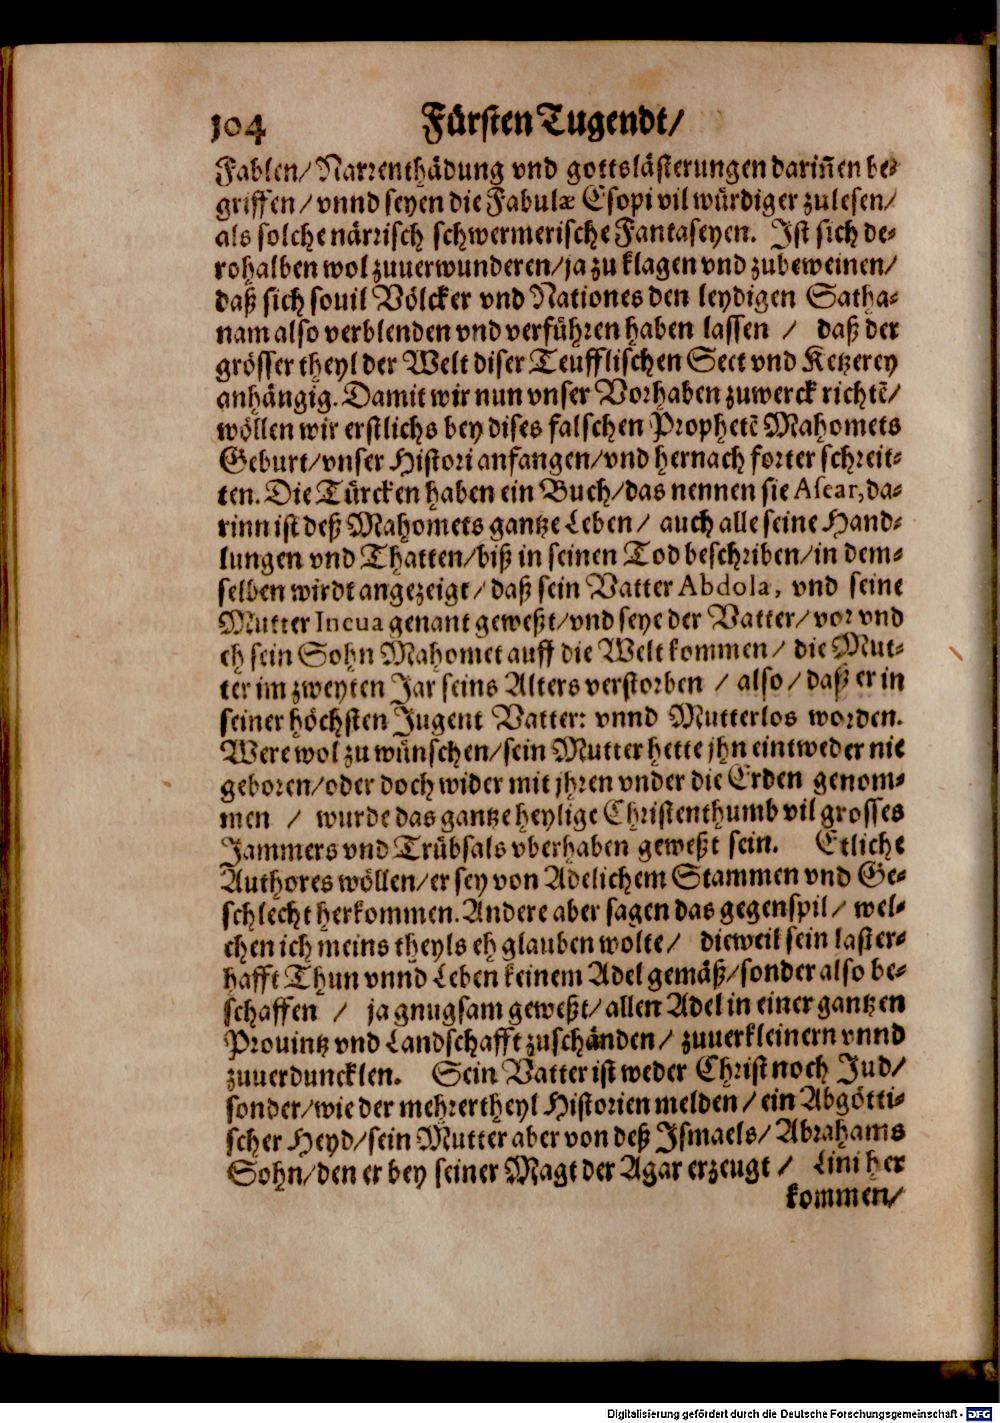 104 Fürsten Tugendt/
Fablen/Narrenthädung vnd gottslästerungen dariñen be-
griffen/vnnd seyen die Fabulæ Esopi vil würdiger zulesen/
als solche närrisch schwermerische Fantaseyen. Ist sich de-
rohalben wol zuuerwunderen/ja zu klagen vnd zubeweinen/
daß sich souil Völcker vnd Nationes den leydigen Satha-
nam also verblenden vnd verführen haben lassen / daß der
grösser theyl der Welt diser Teufflischen Sect vnd Ketzerey
anhängig. Damit wir nun vnser Vorhaben zuwerck richtẽ/
wöllen wir erstlichs bey dises falschen Prophetẽ Mahomets
Geburt/vnser Histori anfangen/vnd hernach forter schreit-
ten. Die Türcken haben ein Buch/das nennen sie Asear,da-
rinn ist deß Mahomets gantze Leben/ auch alle seine Hand-
lungen vnd Thatten/biß in seinen Tod beschriben/in dem-
selben wirdt angezeigt/ daß sein Vatter Abdola, vnd seine
Mutter Incua genant geweßt/vnd seye der Vatter/vor vnd
eh sein Sohn Mahomet auff die Welt kommen/ die Mut-
ter im zweyten Jar seins Alters verstorben / also/ daß er in
seiner höchsten Jugent Vatter: vnnd Mutterlos worden.
Were wol zu wünschen/sein Mutter hette jhn eintweder nie
geboren/oder doch wider mit jhren vnder die Erden genom-
men / wurde das gantze heylige Christenthumb vil grosses
Jammers vnd Trübsals vberhaben geweßt sein. Etliche
Authores wöllen/er sey von Adelichem Stammen vnd Ge-
schlecht herkommen. Andere aber sagen das gegenspil/ wel-
chen ich meins theyls eh glauben wolte/ dieweil sein laster-
hafft Thun vnnd Leben keinem Adel gemäß/sonder also be-
schaffen / ja gnugsam geweßt/allen Adel in einer gantzen
Prouintz vnd Landschafft zuschänden/ zuuerkleinern vnnd
zuuerduncklen. Sein Vatter ist weder Christ noch Jud/
sonder/wie der mehrertheyl Historien melden/ein Abgötti-
scher Heyd/sein Mutter aber von deß Ismaels/Abrahams
Sohn/den er bey seiner Magt der Agar erzeugt / Lini her
kommen/
Digitalisierung gefördert durch die Deutsche Forschungsgemeinschaft - DFG